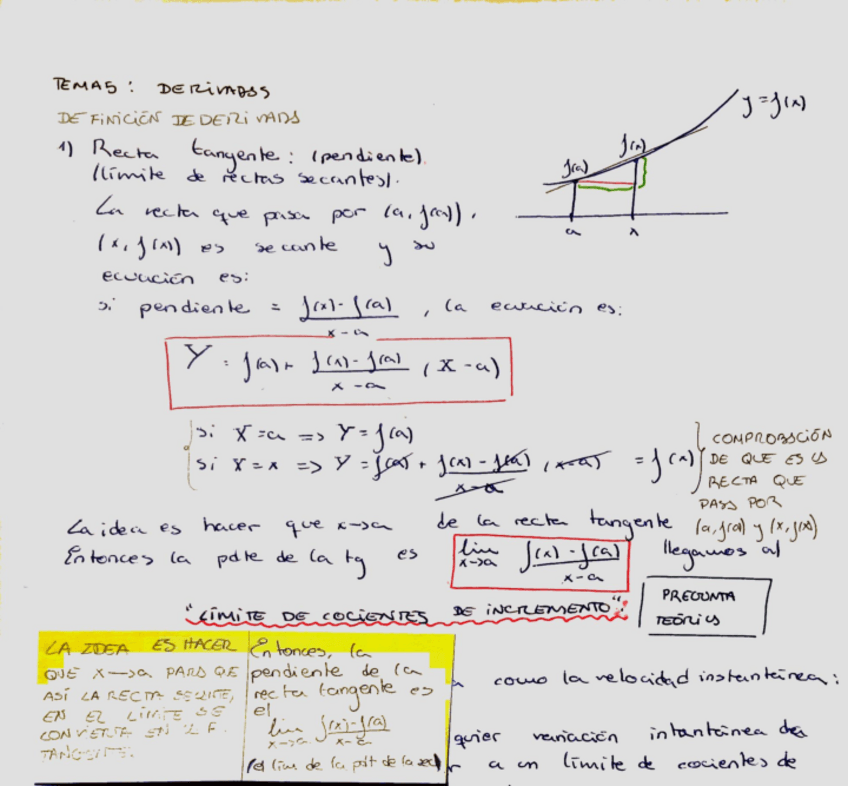 TEMA 5: DERIVADAS
DEFINICIÓN DE DERIVADA
y = f(x)
f(x)
f(a)
a
x
1) Recta tangente: (pendiente).
(límite de rectas secantes).
La recta que pasa por (a, f(a)),
(x, f(x)) es secante y su
ecuación es:
si pendiente = f(x) - f(a) / x - a , la ecuación es:
Y = f(a) + f(x) - f(a) / x - a (X - a)
si X = a => Y = f(a)
si X = x => Y = f(a) + f(x) - f(a) / x - a (x - a) = f(x)
COMPROBACIÓN
DE QUE ES LA
RECTA QUE
PASA POR
(a, f(a)) y (x, f(x))
La idea es hacer que x->a de la recta tangente
Entonces la pdte de la tg es lim x->a f(x) - f(a) / x - a llegamos al
"LÍMITE DE COCIENTES DE INCREMENTO":
PREGUNTA
TEÓRICA
LA IDEA ES HACER
QUE X->a PARA QE
ASÍ LA RECTA SECANTE,
EN EL LÍMITE SE
CONVIERTA EN LA
TANGENTE.
Entonces, la
pendiente de la
recta tangente es
el
lim x->a f(x) - f(a) / x - a
(el lim de la pdt de la sec)
como la velocidad instantánea:
quier variación instantánea de
r a un límite de cocientes de